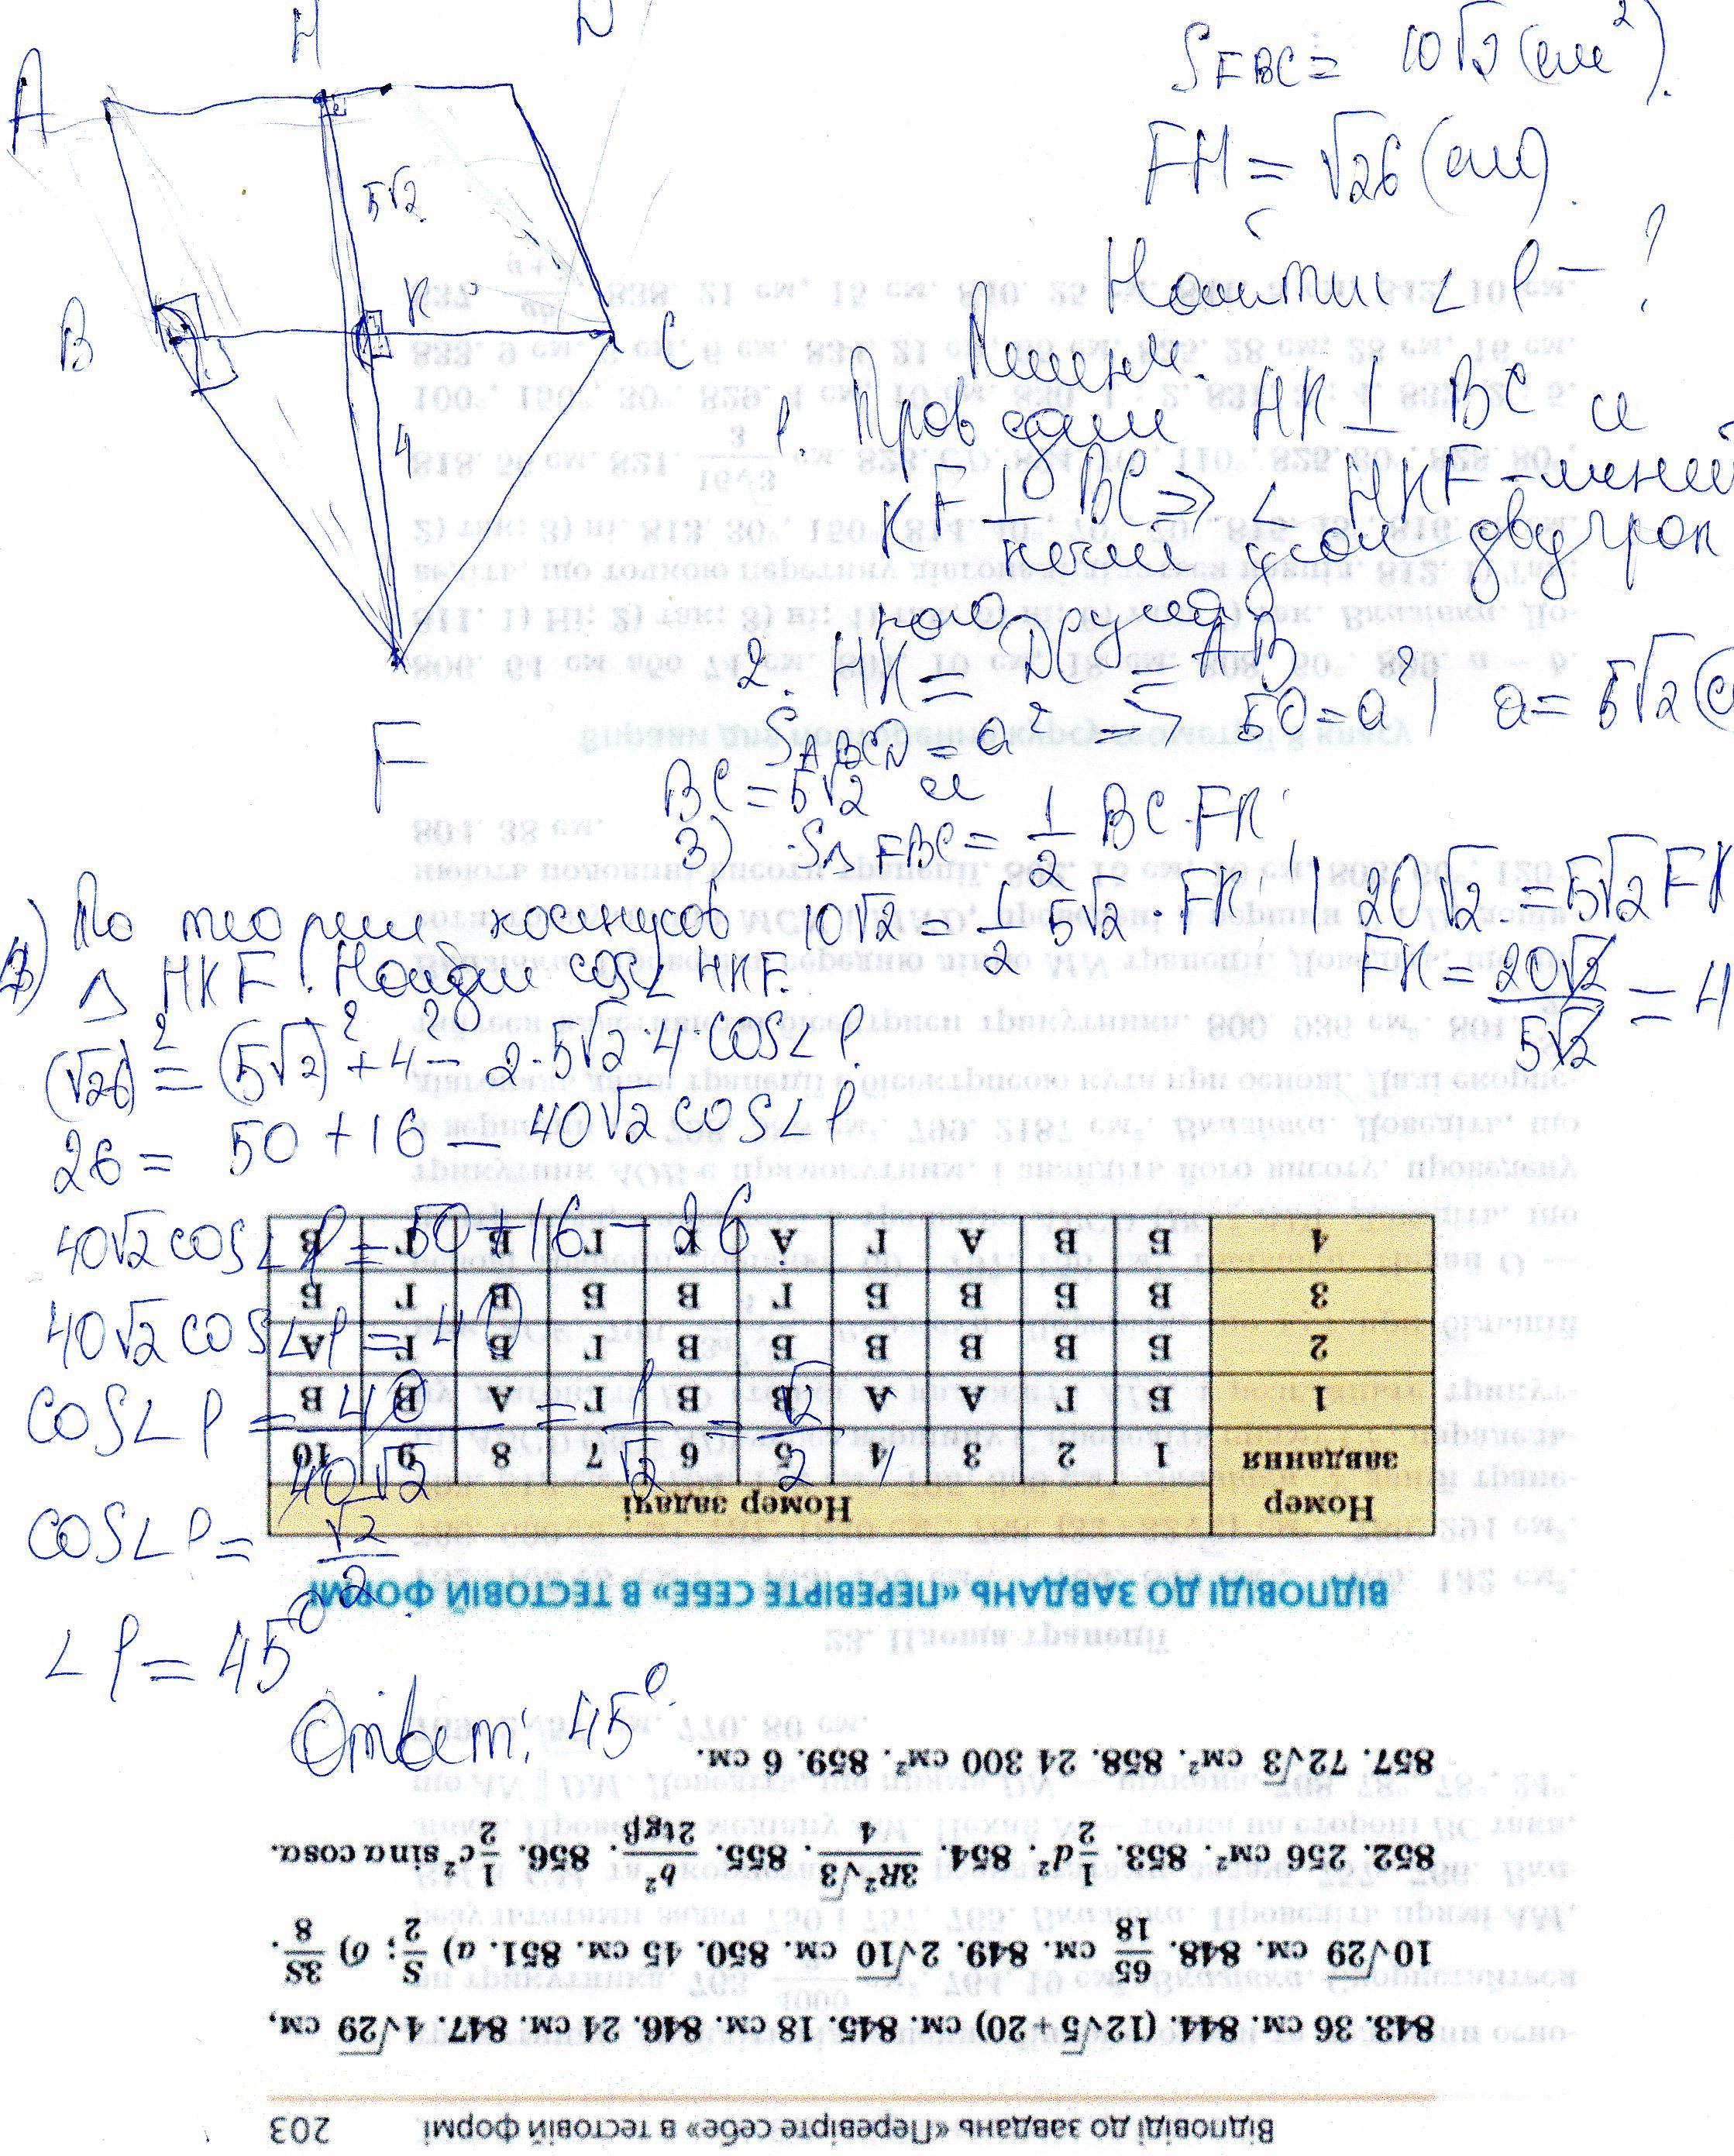 A
H
D
5√2
B
K
C
4
F
S FBC = 10√2 (см²).
FH = √26 (см).
Найти ∠φ - ?
1. Проведем HK ⊥ BC и
KF ⊥ BC => ∠ HKF - линей
ный угол двугран
ного угла
2. HK = DC = AB
S ABCD = a² => 50 = a² | a = 5√2
BC = 5√2 и
3) S△FBC = 1/2 BC · FK
10√2 = 1/2 5√2 · FK | 20√2 = 5√2 FK
FK = 20√2/5√2 = 4
По теореме косинусов
△ HKF. Найдем cos∠ HKF.
(√26)² = (5√2)² + 4² - 2·5√2·4·cos∠φ
26 = 50 + 16 - 40√2 cos∠φ
40√2 cos∠φ = 50 + 16 - 26
40√2 cos∠φ = 40
cos∠φ = 40/40√2 = 1/√2 = √2/2
cos∠φ = √2/2
∠φ = 45°
Ответ: 45°.
Відповіді до завдань «Перевірте себе» в тестовій формі 203
843. 36 см. 844. (12√5 + 20) см. 845. 18 см. 846. 24 см. 847. 4√29 см,
10√29 см. 848. 65/18 см. 849. 2√10 см. 850. 45 см. 851. а) S/2; б) 3S/8.
852. 256 см². 853. 1/2 d². 854. 3R²√3/4. 855. b²/2tgβ. 856. 1/2 c² sinα cosα.
857. 72√3 см². 858. 24 300 см². 859. 6 см.
ВІДПОВІДІ ДО ЗАВДАНЬ «ПЕРЕВІРТЕ СЕБЕ» В ТЕСТОВІЙ ФОРМІ
Номер завдання Номер задачі
1 2 3 4 5 6 7 8 9 10
1 Б Г А А В В Г А В В
2 Б В В В Б В Г Б Г А
3 В Б В Б Г В Б В Г Б
4 Б В А Г А Г В